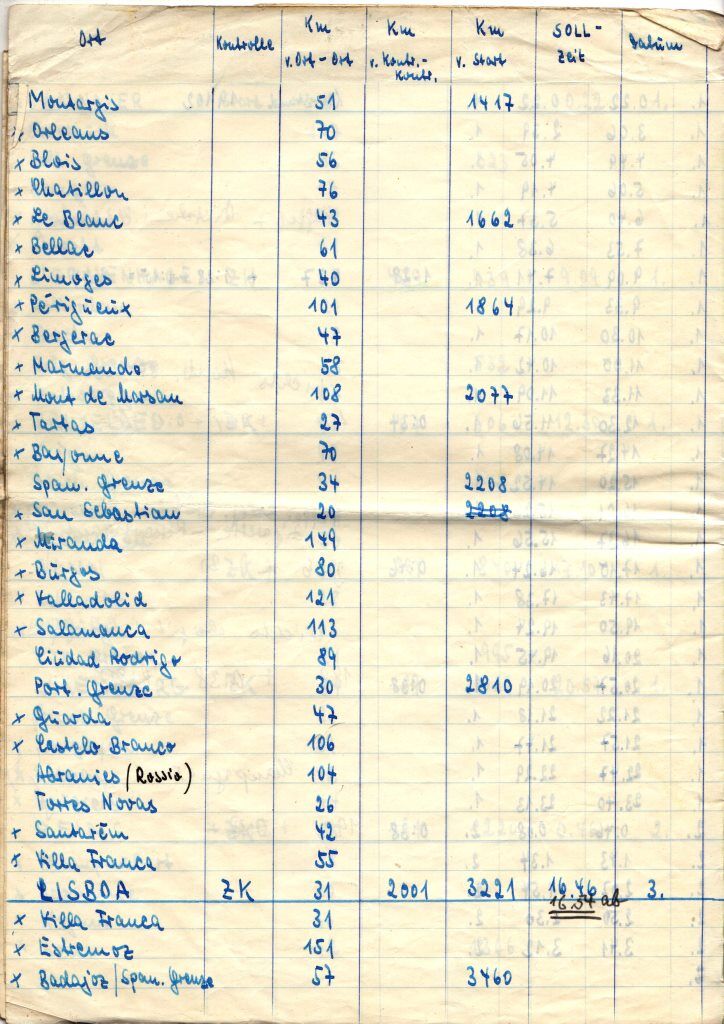 Ort Kontrolle Km v. Ort - Ort Km v. Kontr.- Kontr. Km v. Start SOLL- Zeit Datum
Montargis 51 1417
x Orleans 70
x Blois 56
x Chatillon 76
x Le Blanc 43 1662
x Bellac 61
x Limoges 40
x Périgueux 101 1864
x Bergerac 47
x Marmande 58
x Mont de Marsan 108 2077
x Tartas 27
x Bayonne 70
Span. Grenze 34 2208
x San Sebastian 20 2208
x Miranda 149
x Burgos 80
x Valladolid 121
x Salamanca 113
Ciudad Rodrigo 89
Port. Grenze 30 2810
x Guarda 47
x Castelo Branco 106
Abrantes (Rossio) 104
Torres Novas 26
+ Santarém 42
x Villa Franca 55
LISBOA ZK 31 2001 3221 16.46 3.
16.54 ab
x Villa Franca 31
x Estremoz 151
x Badajoz / Span. Grenze 57 3460